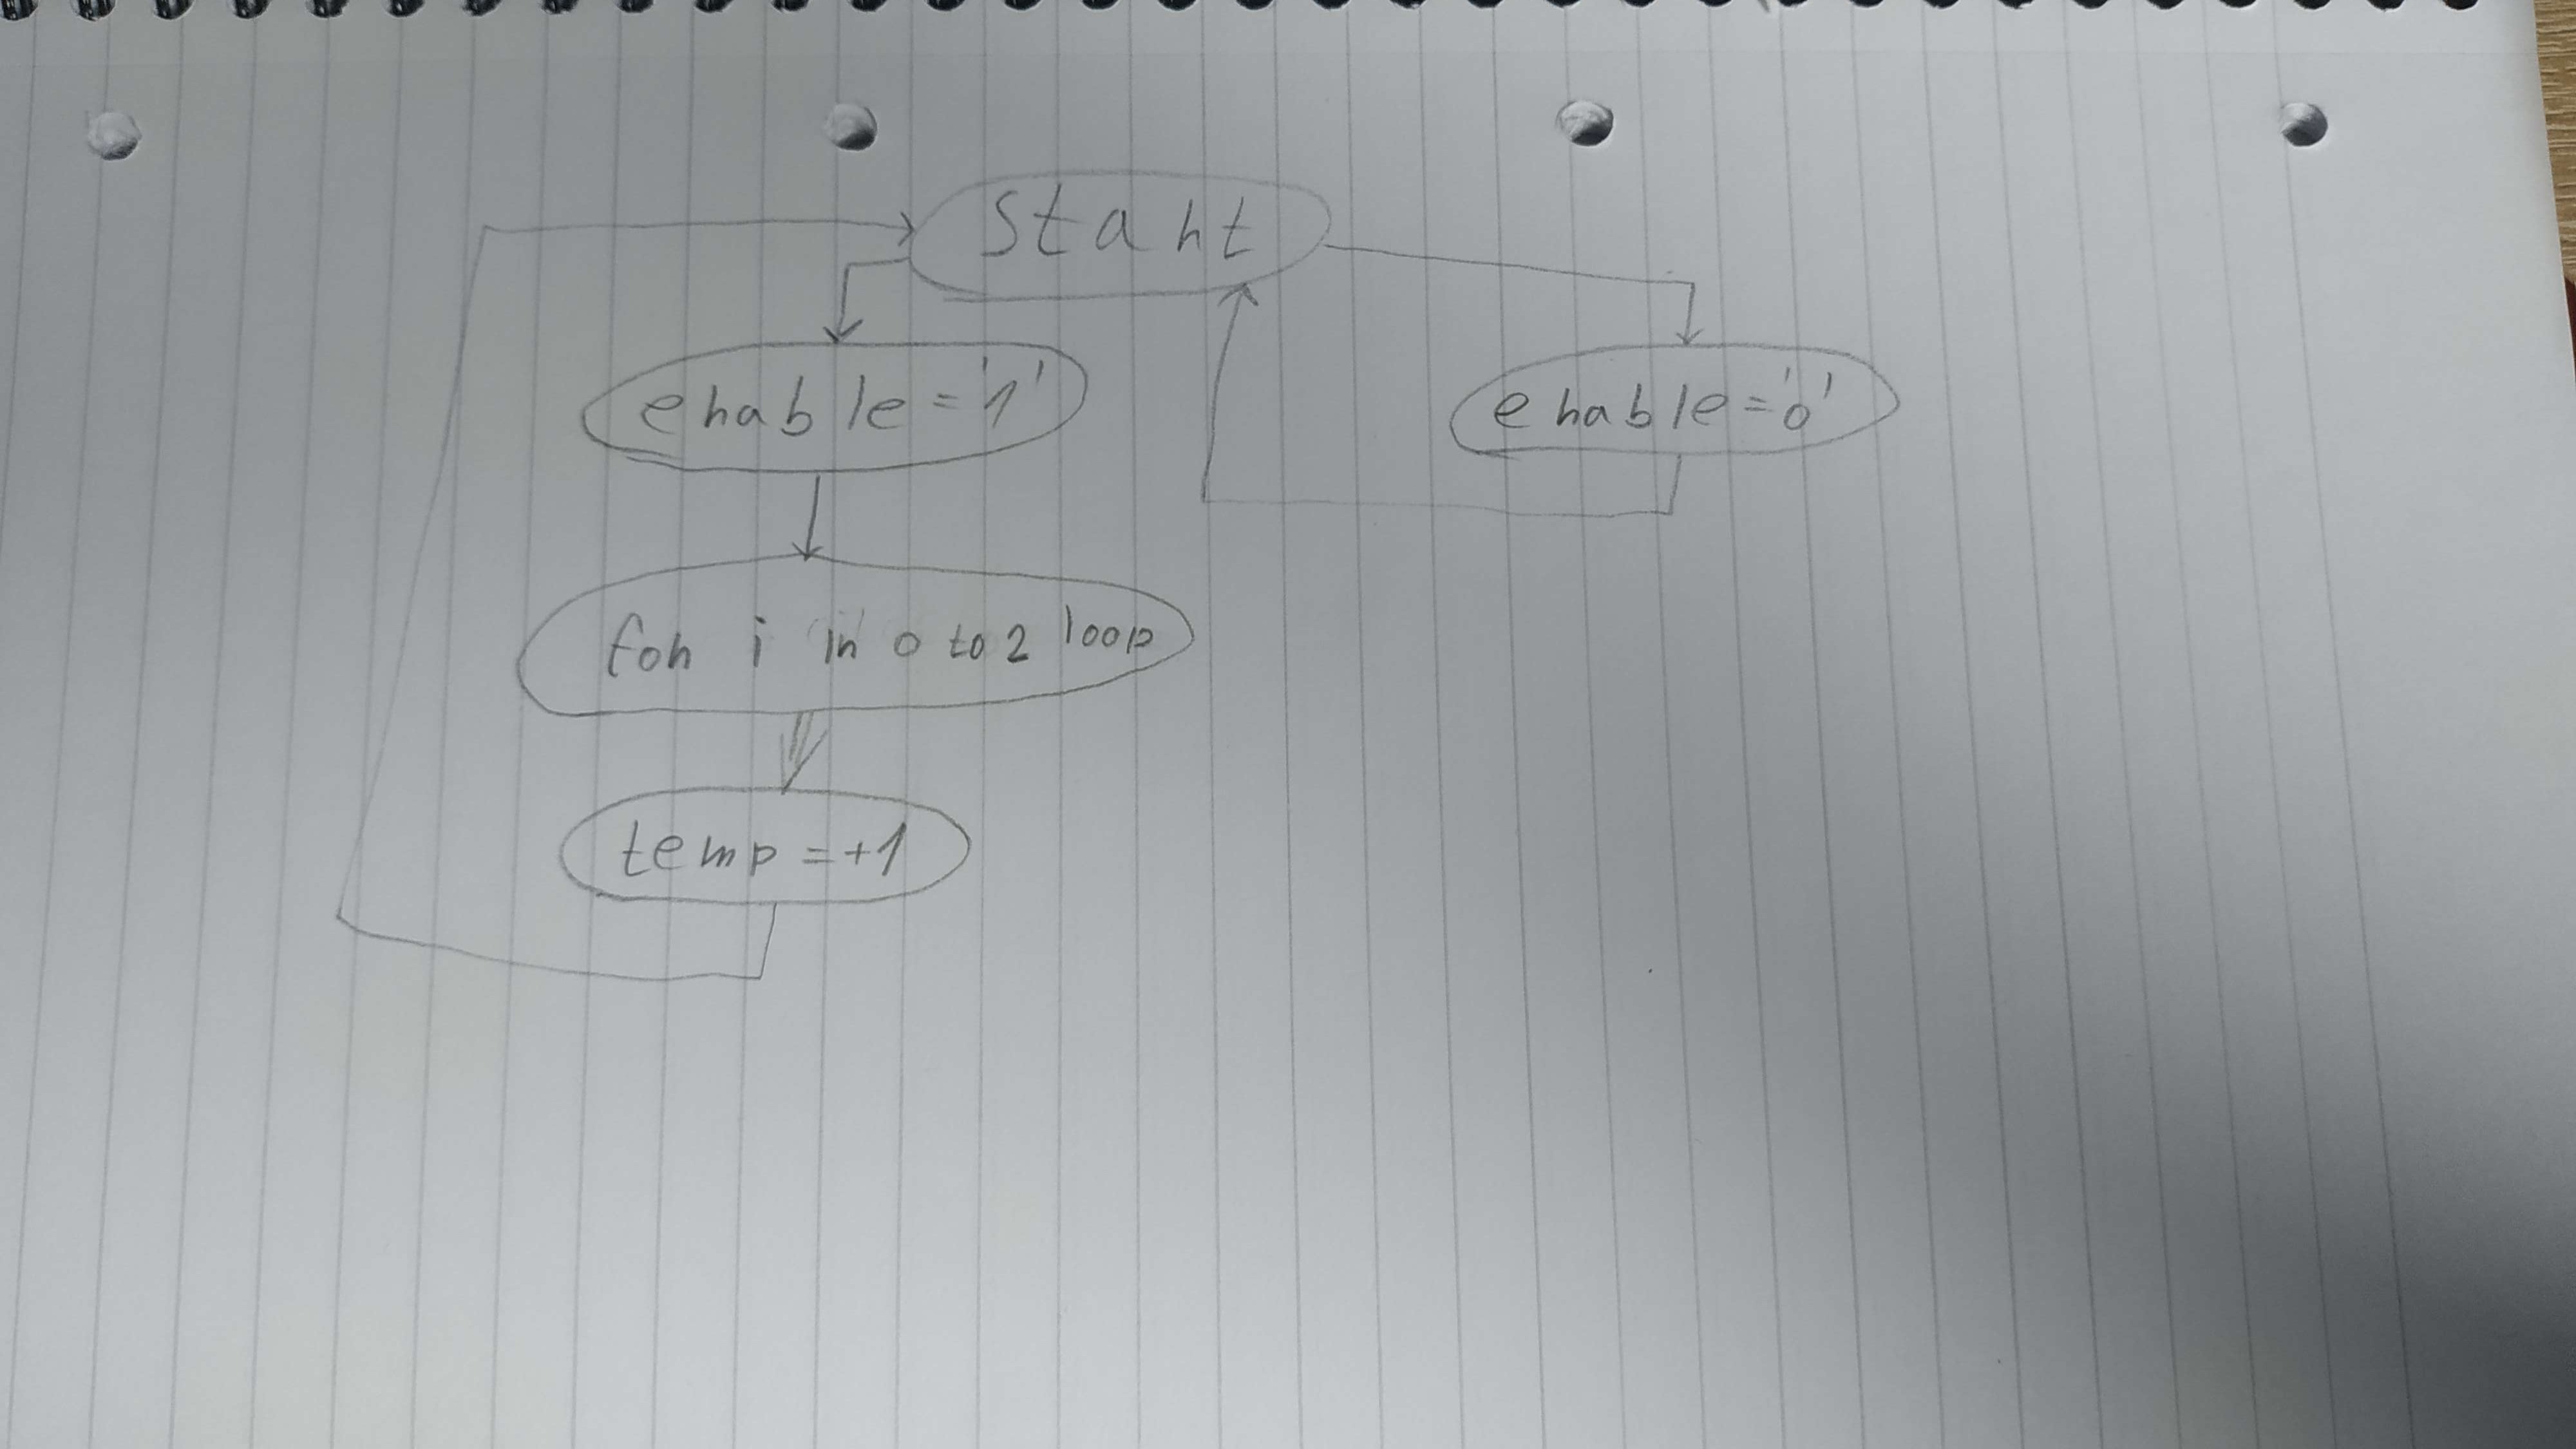 Start
enable='1'
enable='0'
for i in 0 to 2 loop
temp=+1